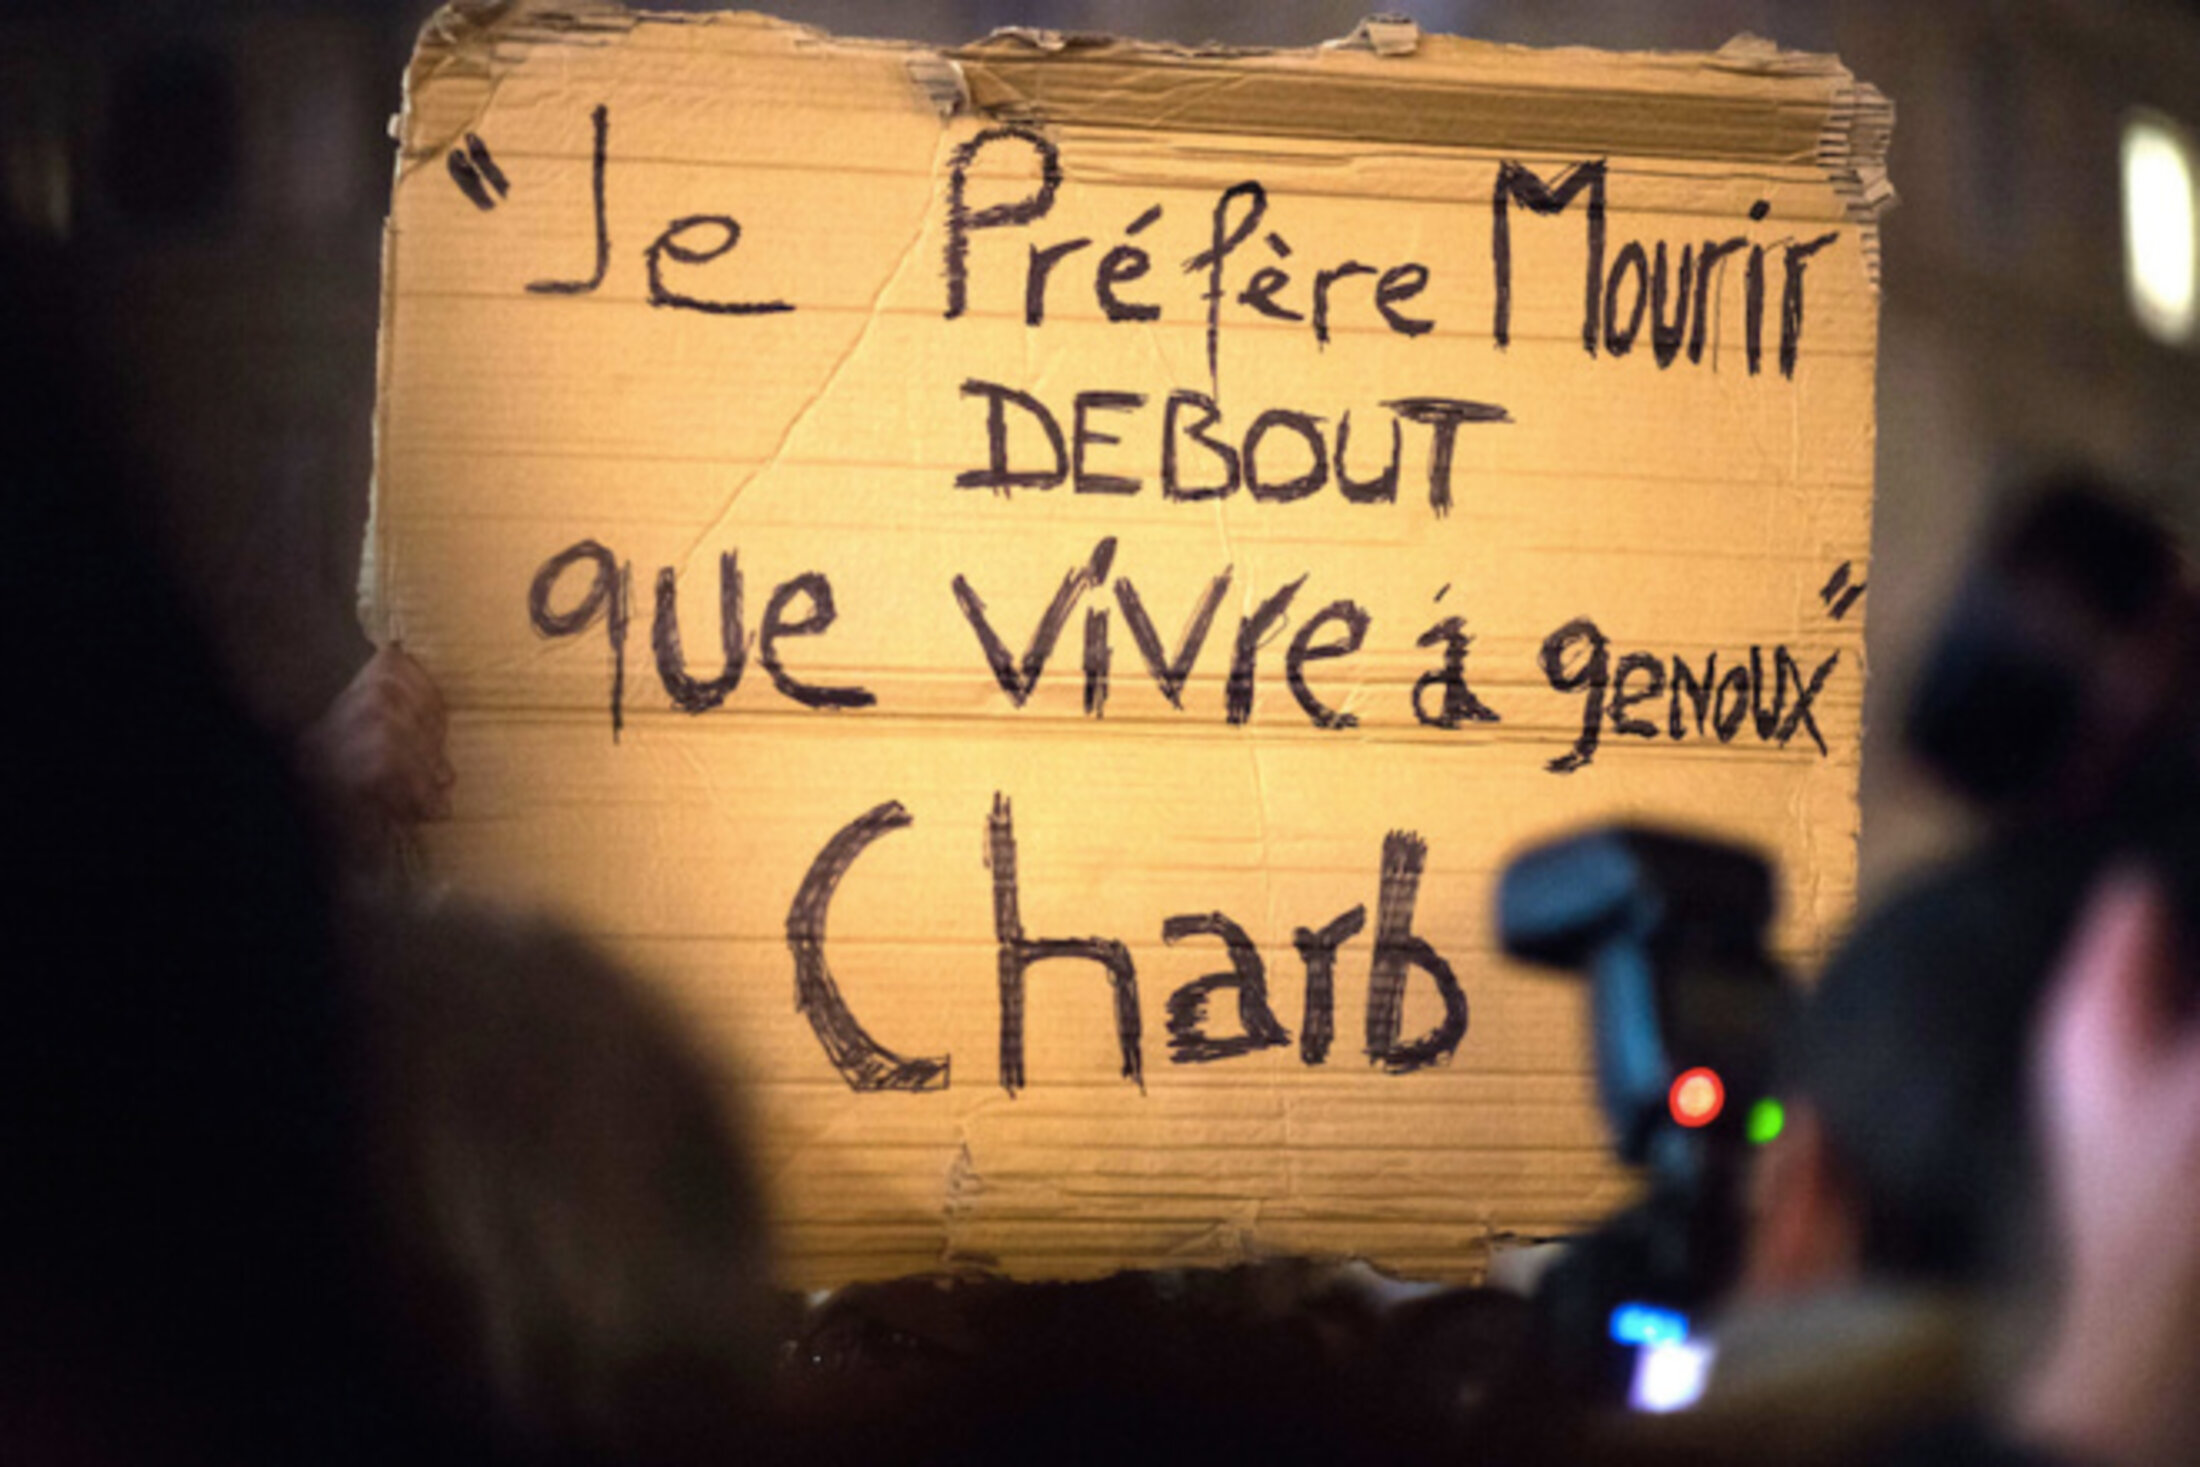 "Je Préfère Mourir
DEBOUT
que vivre à genoux"
Charb